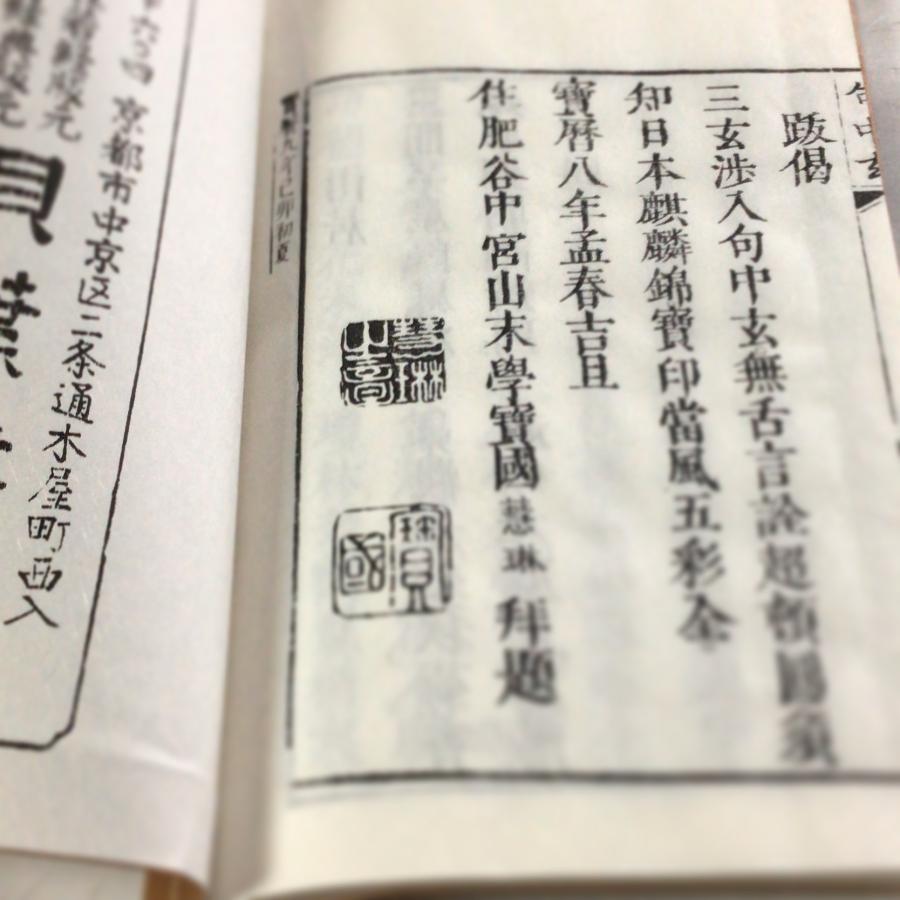 句中玄
跋偈
三玄涉入句中玄無舌言詮超頓圓須
知日本麒麟錦寶印當風五彩全
寶曆八年孟春吉旦
住肥谷中宮山末學寶國慧琳拜題
慧琳
之章
寶國
寶曆九年己卯初夏
京都市中京区二条通木屋町西入
貝葉